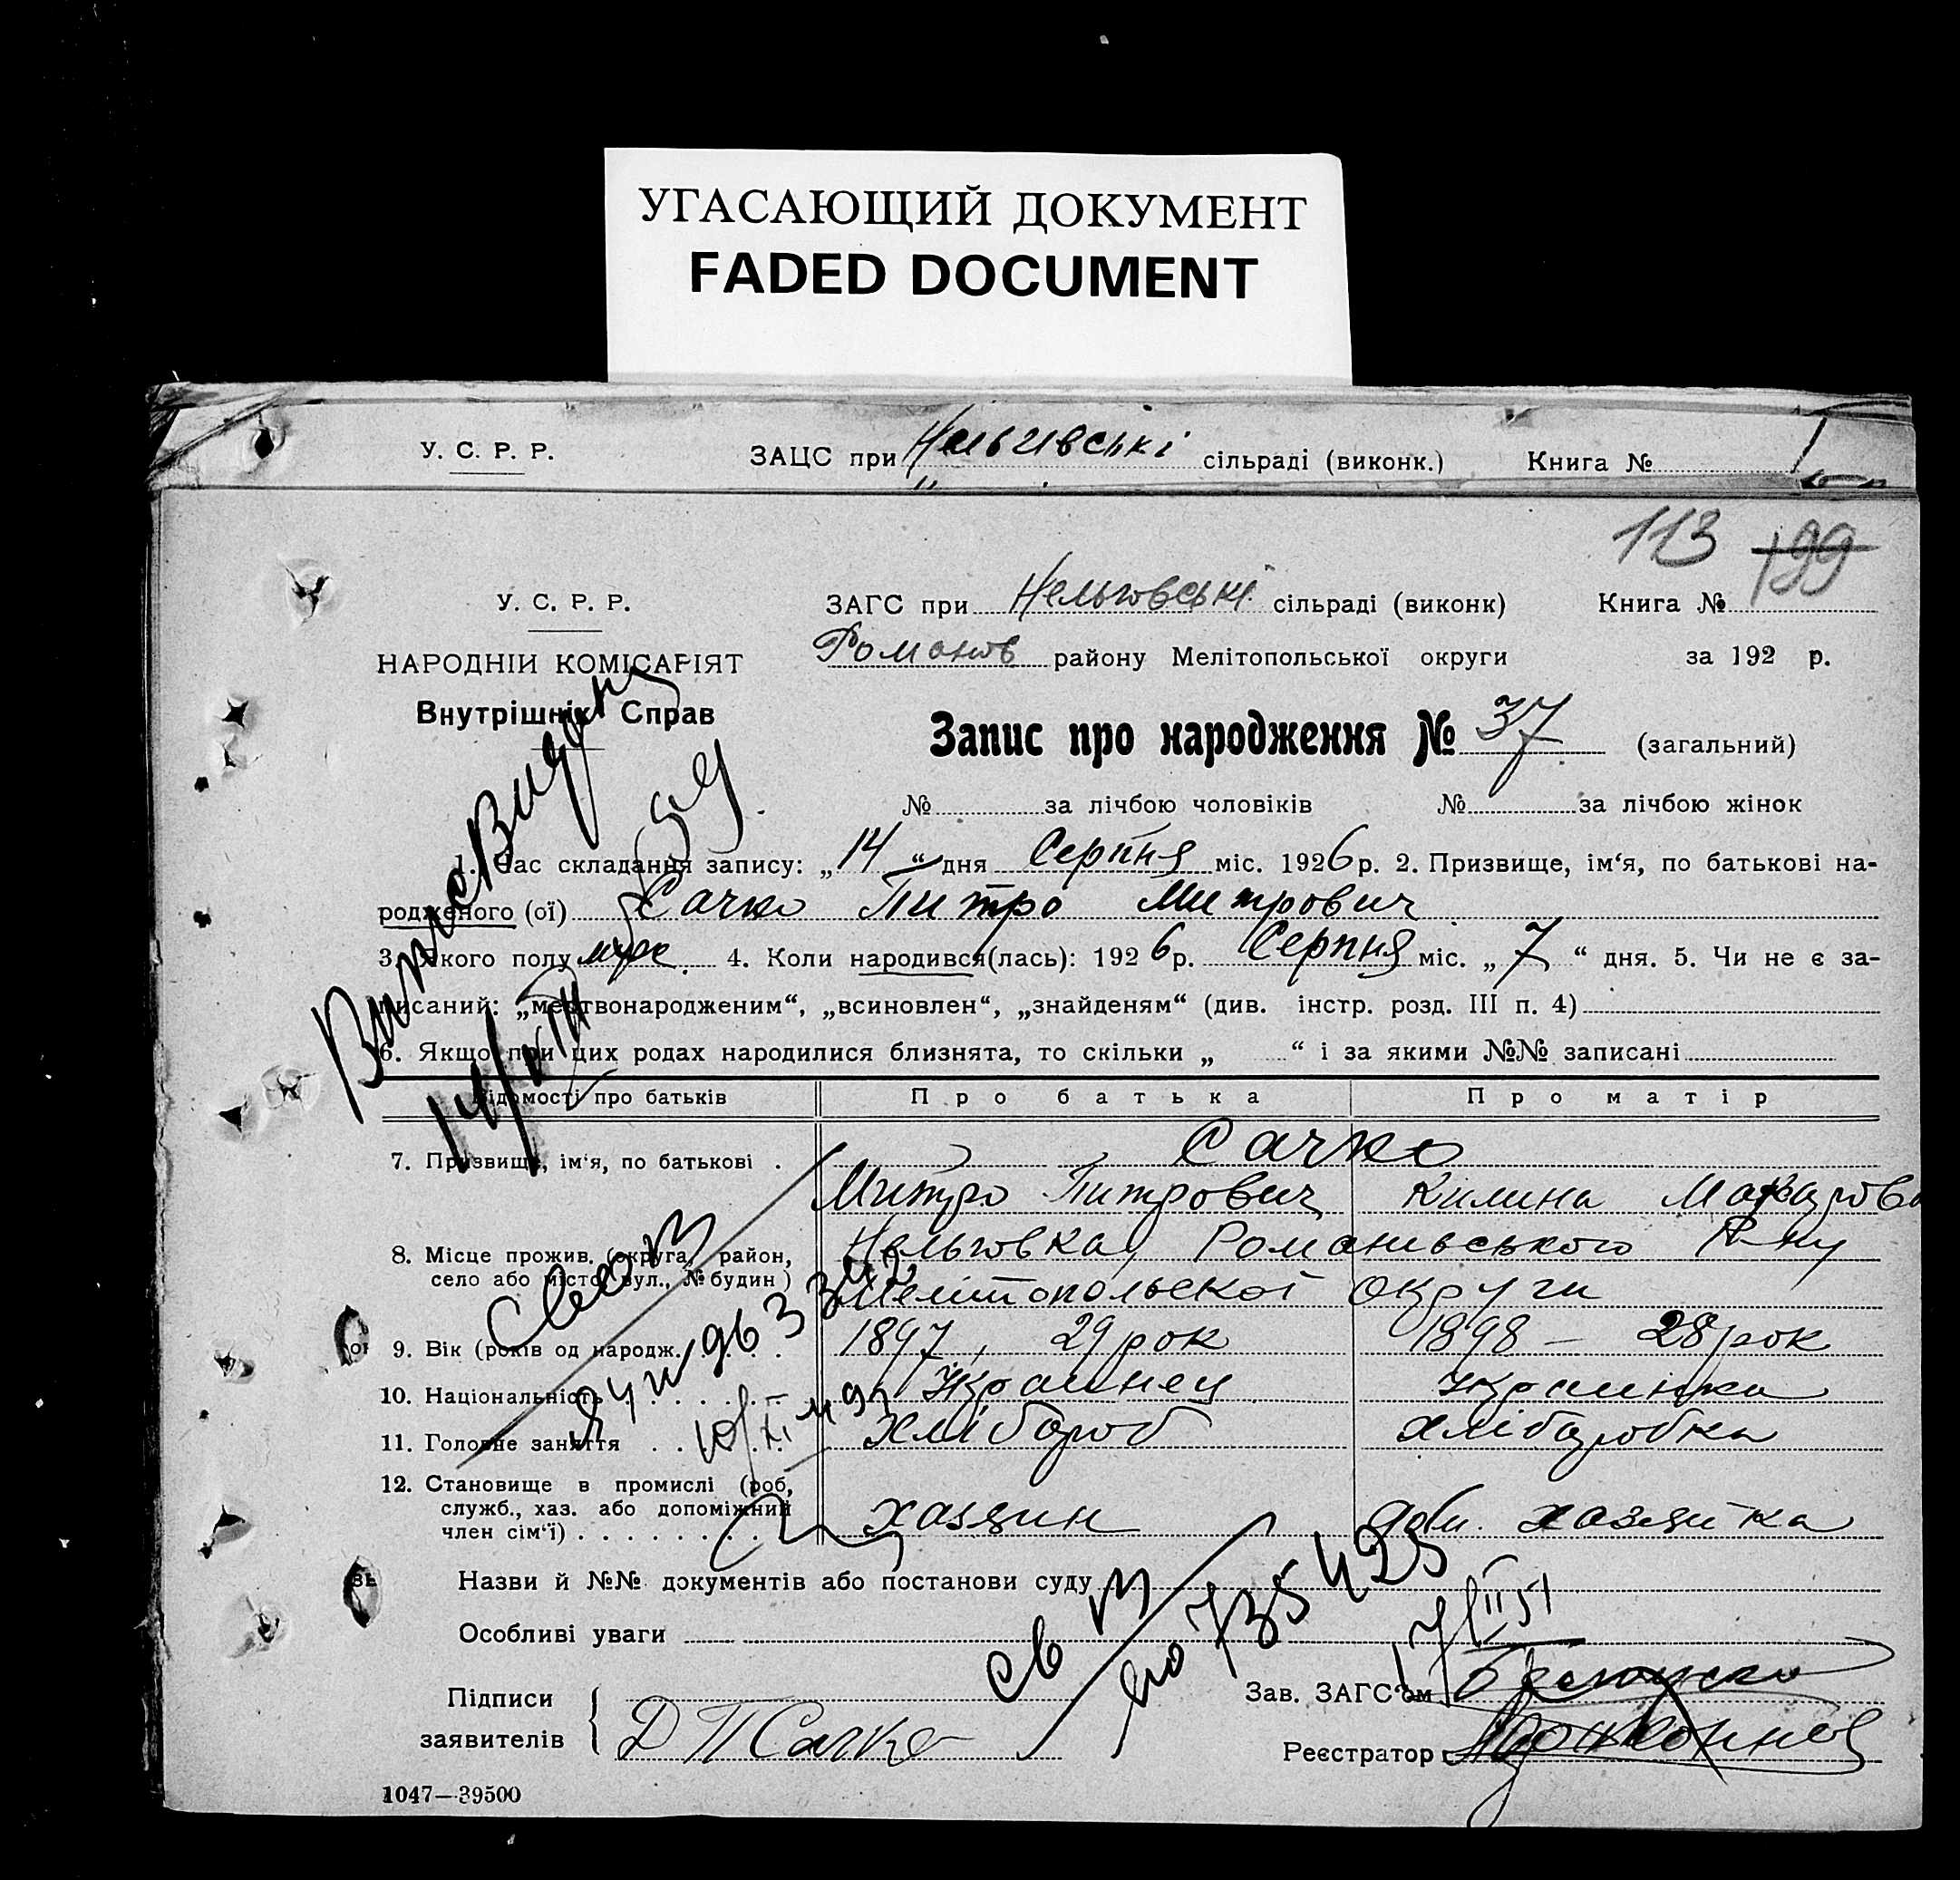 УГАСАЮЩИЙ ДОКУМЕНТ
FADED DOCUMENT
У. С. Р. Р. ЗАЦС при сільраді (виконк.) Книга №
113 199
У. С. Р. Р. ЗАГС при Нельговські сільраді (виконк) Книга №
НАРОДНІИ КОМІСАРІЯТ Романов району Мелітопольської округи за 192 р.
Внутрішніх Справ
Запис про народження № 37 (загальний)
№ за лічбою чоловіків № за лічбою жінок
1. Час складання запису: „ 14 “ дня Серпня міс. 1926 р. 2. Призвище, ім‘я, по батькові на-
родженого (ої) Сачко Питро Митрович
3. Якого полу муж. 4. Коли народився(лась): 1926 р. Серпня міс. „ 7 “ дня. 5. Чи не є за-
писаний: „мертвонародженим“, „всиновлен“, „знайденям“ (див. інстр. розд. III п. 4)
6. Якщо при цих родах народилися близнята, то скільки „ “ і за якими №№ записані
Відомості про батьків Про батька Про матір
7. Призвище, ім‘я, по батькові . Сачко
Митро Питрович Килина
8. Місце прожив. (округа, район, Нельговка, Романивського Р-ну
село або місто, вул., № будин) Мелітопольскоі округи
9. Вік (років од народж. 1897, 29 рок 1898 – 28 рок
10. Національність Украинец Украинка
11. Головне заняття хлібороб хліборобка
12. Становище в промислі (роб,
служб., хаз. або допоміжний
член сім‘ї) хазяин хазяйка
Назви й №№ документів або постанови суду
Особливі уваги
Підписи Зав. ЗАГС‘ом
заявителів Д П Сачко Реєстратор
1047—39500
Випис Видана
14/VIII
св
735425
17/II 51